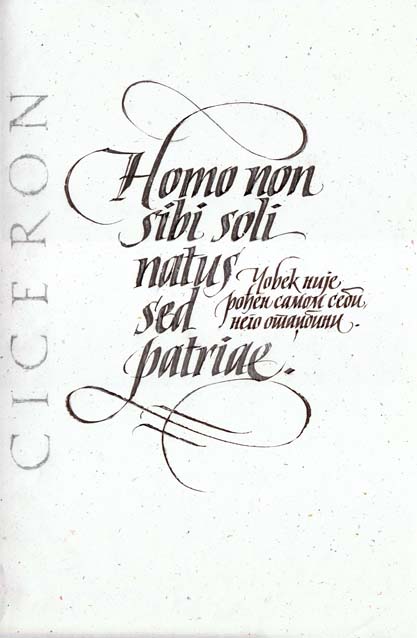 CICERON
Homo non
sibi soli
natus
sed
patriae.
Човек није
рођен самом себи,
него отаџбини.